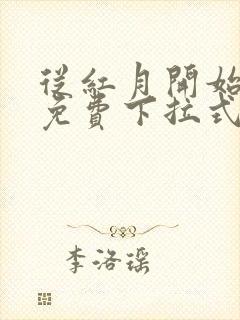 從紅月開始
免費下拉式
李洛瑶